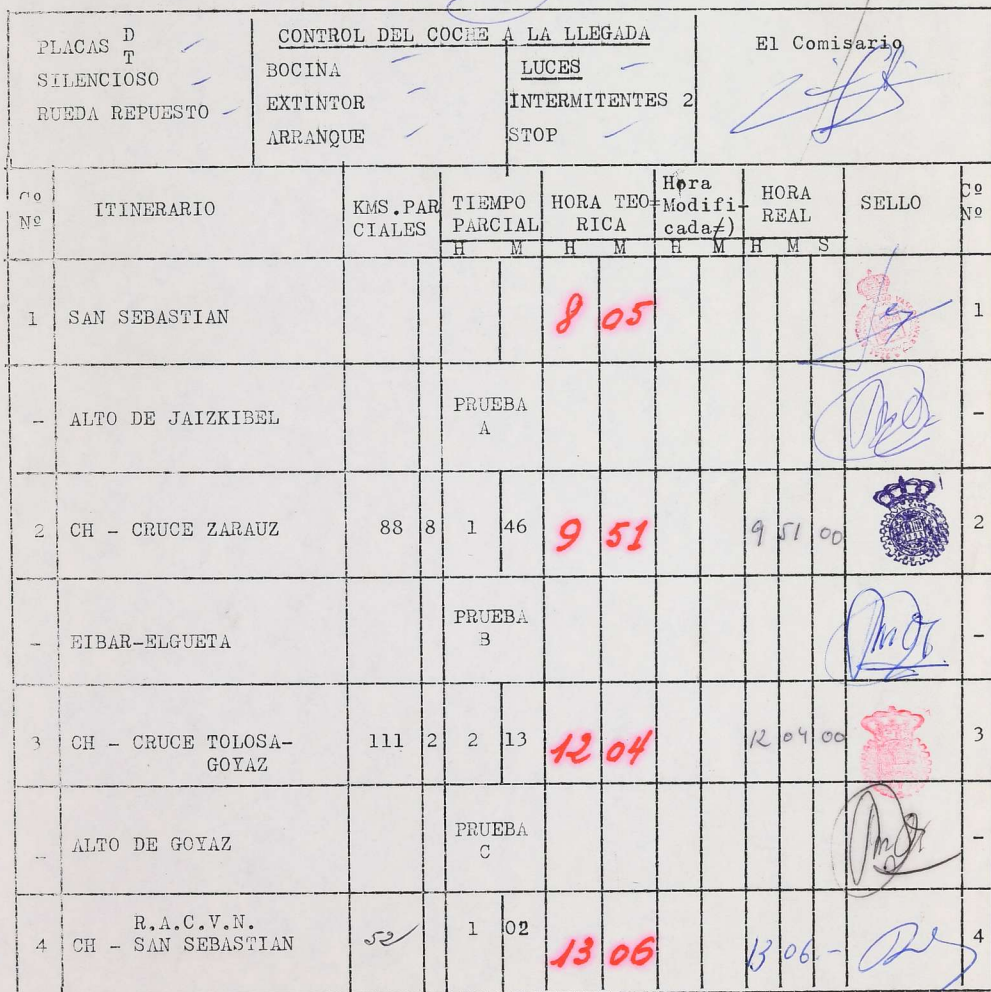 PLACAS D T
SILENCIOSO
RUEDA REPUESTO
CONTROL DEL COCHE A LA LLEGADA
BOCINA
EXTINTOR
ARRANQUE
LUCES
INTERMITENTES 2
STOP
El Comisario
Cº Nº ITINERARIO KMS.PARCIALES TIEMPO PARCIAL HORA TEORICA Hora Modificada≠) HORA REAL SELLO Cº Nº
H M H M H M H M S
1 SAN SEBASTIAN 8 05 1
- ALTO DE JAIZKIBEL PRUEBA A -
2 CH - CRUCE ZARAUZ 88 8 1 46 9 51 9 51 00 2
- EIBAR-ELGUETA PRUEBA B -
3 CH - CRUCE TOLOSA- 111 2 2 13 12 04 12 04 00 3
GOYAZ
- ALTO DE GOYAZ PRUEBA C -
R.A.C.V.N.
4 CH - SAN SEBASTIAN 52 1 02 13 06 13 06 - 4